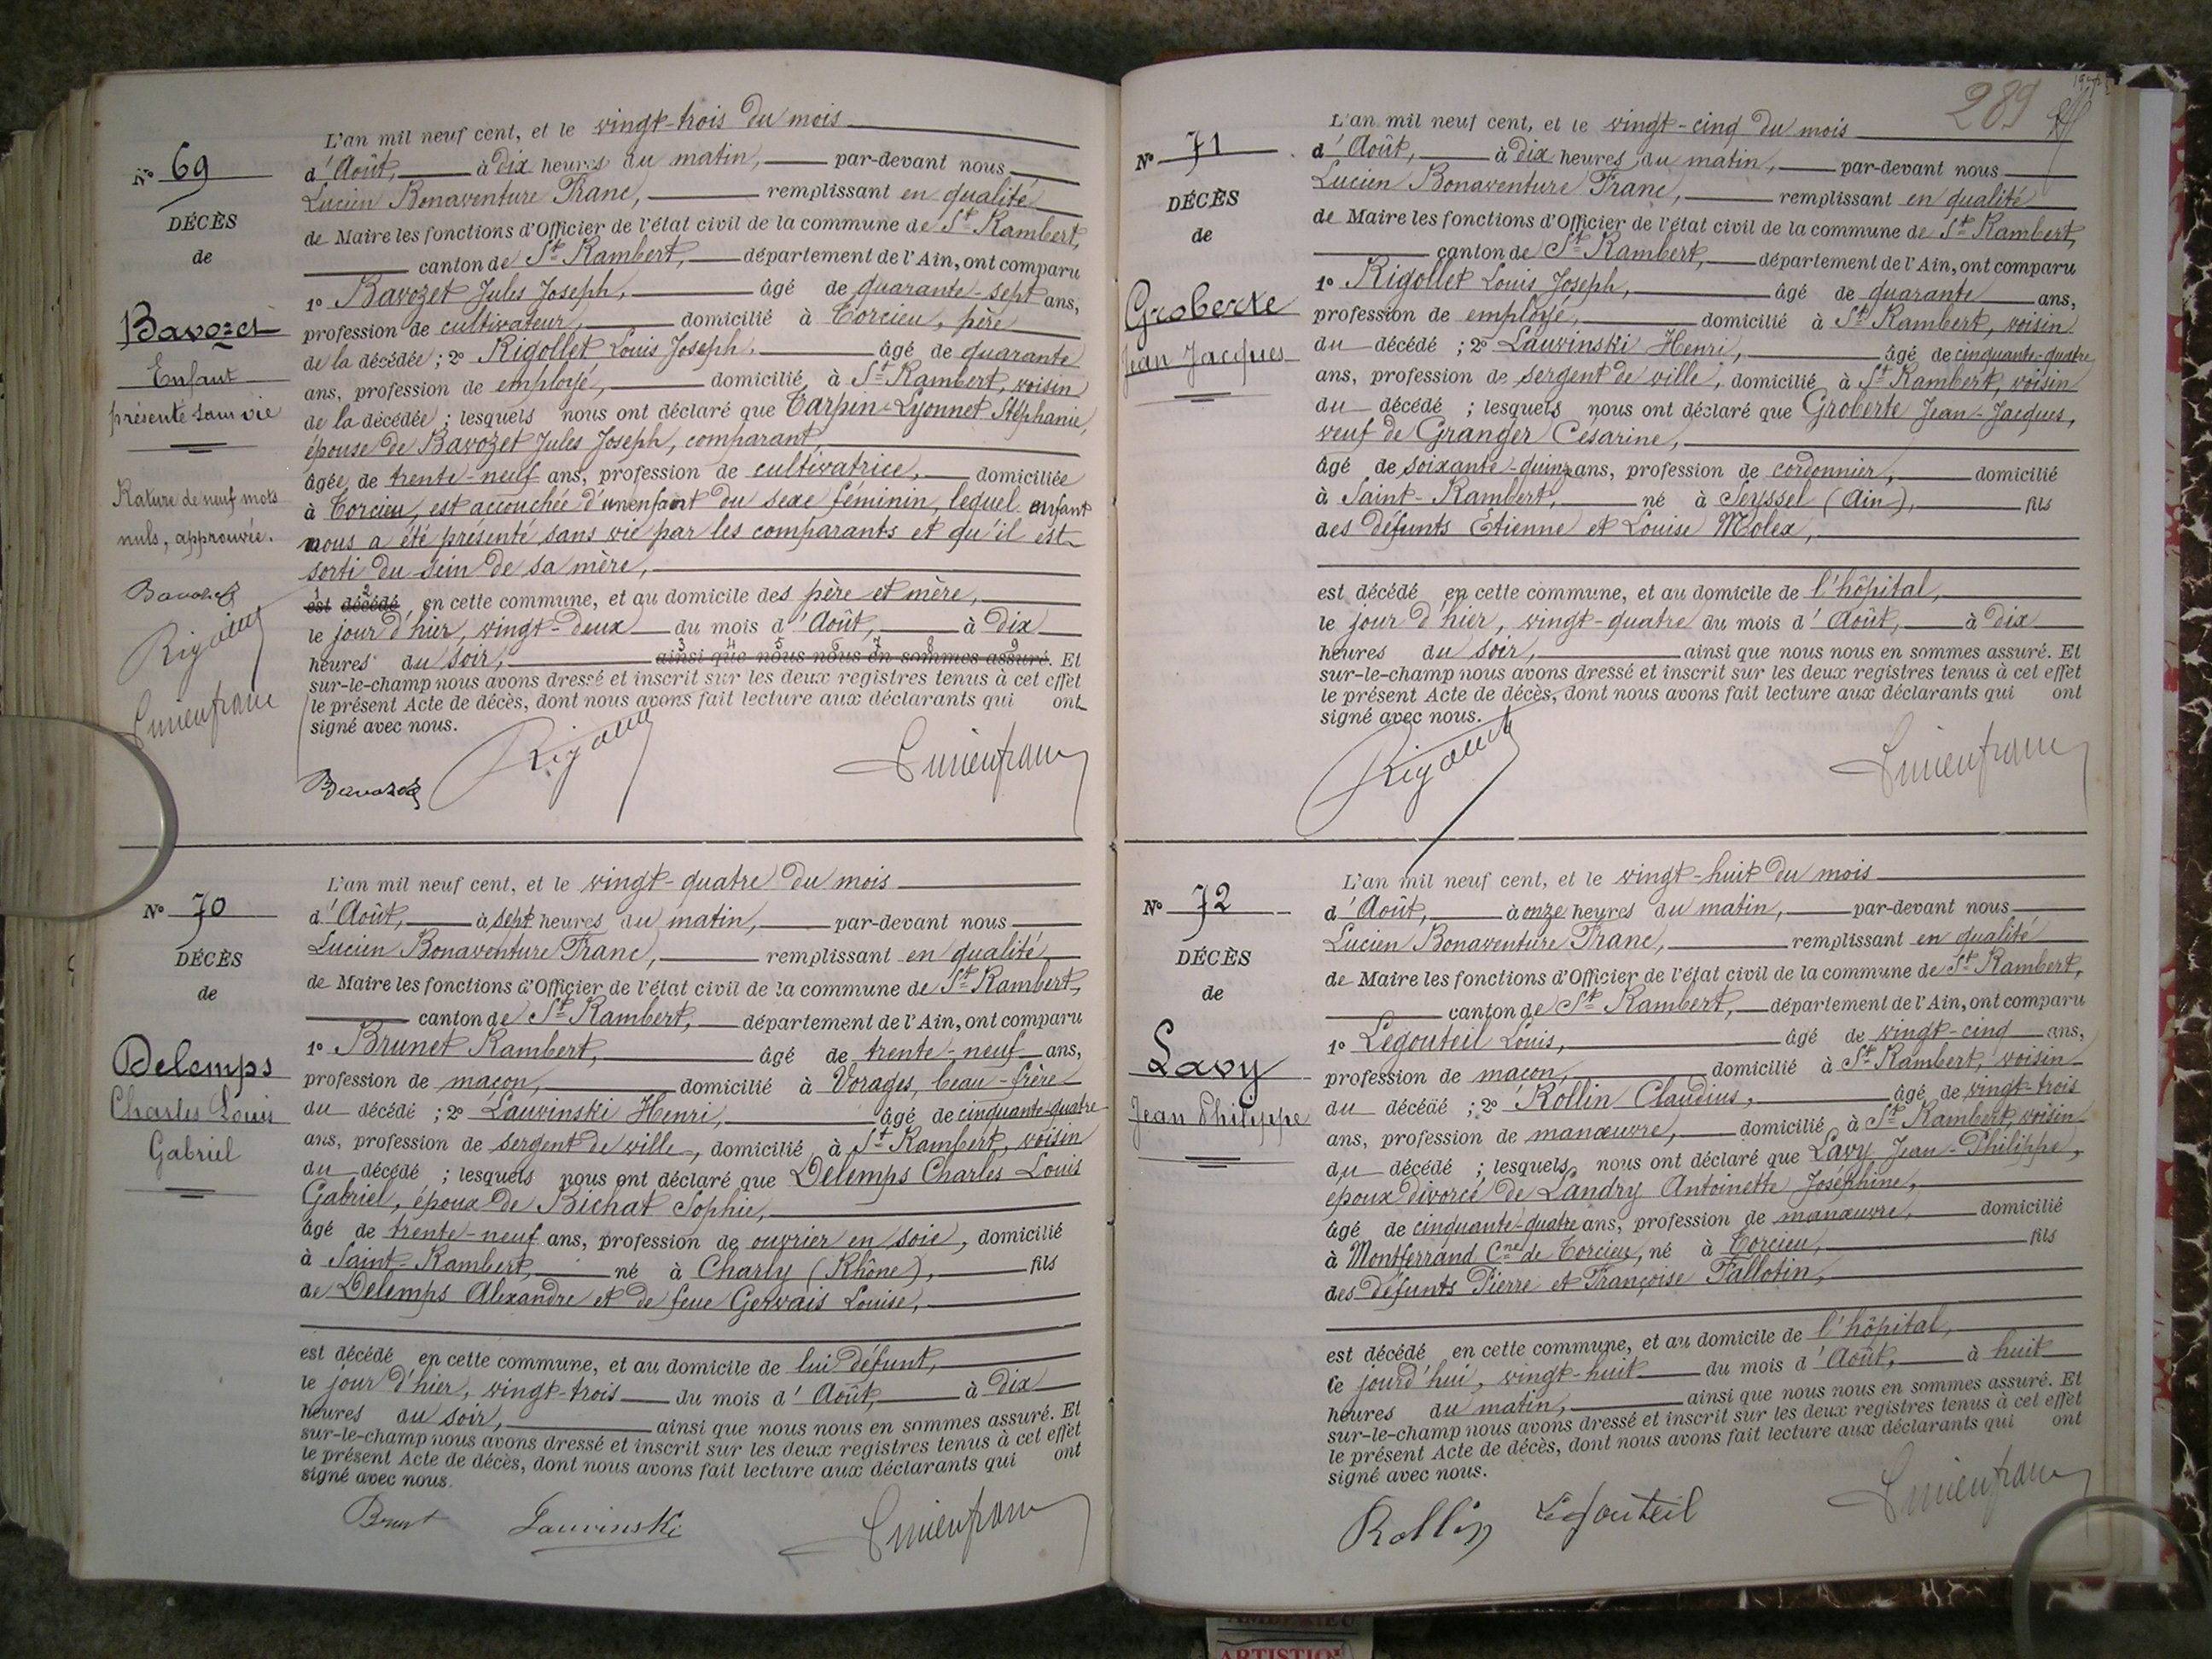 N° 69
DÉCÈS
de
Bavozet
Enfant
présenté sans vie
Rature de neuf mots
nuls, approuvée.
Bavozet
Rigollet
Lucien franc
L'an mil neuf cent, et le vingt-trois du mois
d'Août, à dix heures du matin, par-devant nous
Lucien Bonaventure Franc, remplissant en qualité
de Maire les fonctions d'Officier de l'état civil de la commune de St Rambert,
canton de St Rambert, département de l'Ain, ont comparu
1° Bavozet Jules Joseph, âgé de quarante-sept ans,
profession de cultivateur, domicilié à Torcieu, père
de la décédée ; 2° Rigollet Louis Joseph, âgé de quarante
ans, profession de employé, domicilié à St Rambert, voisin
de la décédée ; lesquels nous ont déclaré que Tarpin-Lyonnet Stéphanie,
épouse de Bavozet Jules Joseph, comparant,
âgée de trente-neuf ans, profession de cultivatrice, domiciliée
à Torcieu, est accouchée d'un enfant du sexe féminin, lequel enfant
nous a été présenté sans vie par les comparants et qu'il est
sorti du sein de sa mère,
est décédé, en cette commune, et au domicile des père et mère,
le jour d'hier, vingt-deux du mois d'Août, à dix
heures du soir, ainsi que nous nous en sommes assuré. Et
sur-le-champ nous avons dressé et inscrit sur les deux registres tenus à cet effet
le présent Acte de décès, dont nous avons fait lecture aux déclarants qui ont
signé avec nous.
Bavozet Rigollet Lucien franc
N° 70
DÉCÈS
de
Delemps
Charles Louis
Gabriel
L'an mil neuf cent, et le vingt-quatre du mois
d'Août, à sept heures du matin, par-devant nous
Lucien Bonaventure Franc, remplissant en qualité
de Maire les fonctions d'Officier de l'état civil de la commune de St Rambert,
canton de St Rambert, département de l'Ain, ont comparu
1° Brunet Rambert, âgé de trente-neuf ans,
profession de maçon, domicilié à Vorages, beau-frère
du décédé ; 2° Lauvinski Henri, âgé de cinquante-quatre
ans, profession de sergent de ville, domicilié à St Rambert, voisin
du décédé ; lesquels nous ont déclaré que Delemps Charles Louis
Gabriel, époux de Bichat Sophie,
âgé de trente-neuf ans, profession de ouvrier en soie, domicilié
à Saint-Rambert, né à Charly (Rhône), fils
de Delemps Alexandre et de feue Gervais Louise,
est décédé en cette commune, et au domicile de lui défunt,
le jour d'hier, vingt-trois du mois d'Août, à dix
heures du soir, ainsi que nous nous en sommes assuré. Et
sur-le-champ nous avons dressé et inscrit sur les deux registres tenus à cet effet
le présent Acte de décès, dont nous avons fait lecture aux déclarants qui ont
signé avec nous.
Brunet Lauvinski Lucien franc
289
N° 71
DÉCÈS
de
Groberte
Jean Jacques
L'an mil neuf cent, et le vingt-cinq du mois
d'Août, à dix heures du matin, par-devant nous
Lucien Bonaventure Franc, remplissant en qualité
de Maire les fonctions d'Officier de l'état civil de la commune de St Rambert,
canton de St Rambert, département de l'Ain, ont comparu
1° Rigollet Louis Joseph, âgé de quarante ans,
profession de employé, domicilié à St Rambert, voisin
du décédé ; 2° Lauvinski Henri, âgé de cinquante-quatre
ans, profession de sergent de ville, domicilié à St Rambert, voisin
du décédé ; lesquels nous ont déclaré que Groberte Jean-Jacques,
veuf de Granger Césarine,
âgé de soixante-quinze ans, profession de cordonnier, domicilié
à Saint-Rambert, né à Seyssel (Ain), fils
des défunts Étienne et Louise Molex,
est décédé en cette commune, et au domicile de l'hôpital,
le jour d'hier, vingt-quatre du mois d'Août, à dix
heures du soir, ainsi que nous nous en sommes assuré. Et
sur-le-champ nous avons dressé et inscrit sur les deux registres tenus à cet effet
le présent Acte de décès, dont nous avons fait lecture aux déclarants qui ont
signé avec nous.
Rigollet Lucien franc
N° 72
DÉCÈS
de
Lavy
Jean Philippe
L'an mil neuf cent, et le vingt-huit du mois
d'Août, à onze heures du matin, par-devant nous
Lucien Bonaventure Franc, remplissant en qualité
de Maire les fonctions d'Officier de l'état civil de la commune de St Rambert,
canton de St Rambert, département de l'Ain, ont comparu
1° Legouteil Louis, âgé de vingt-cinq ans,
profession de maçon, domicilié à St Rambert, voisin
du décédé ; 2° Rollin Claudius, âgé de vingt-trois
ans, profession de manœuvre, domicilié à St Rambert, voisin
du décédé ; lesquels nous ont déclaré que Lavy Jean-Philippe,
époux divorcé de Landry Antoinette Joséphine,
âgé de cinquante-quatre ans, profession de manœuvre, domicilié
à Montferrand Cne de Torcieu, né à Torcieu, fils
des défunts Pierre et Françoise Tallotin,
est décédé en cette commune, et au domicile de l'hôpital,
le jourd'hui, vingt-huit du mois d'Août, à huit
heures du matin, ainsi que nous nous en sommes assuré. Et
sur-le-champ nous avons dressé et inscrit sur les deux registres tenus à cet effet
le présent Acte de décès, dont nous avons fait lecture aux déclarants qui ont
signé avec nous.
Rollin Legouteil Lucien franc